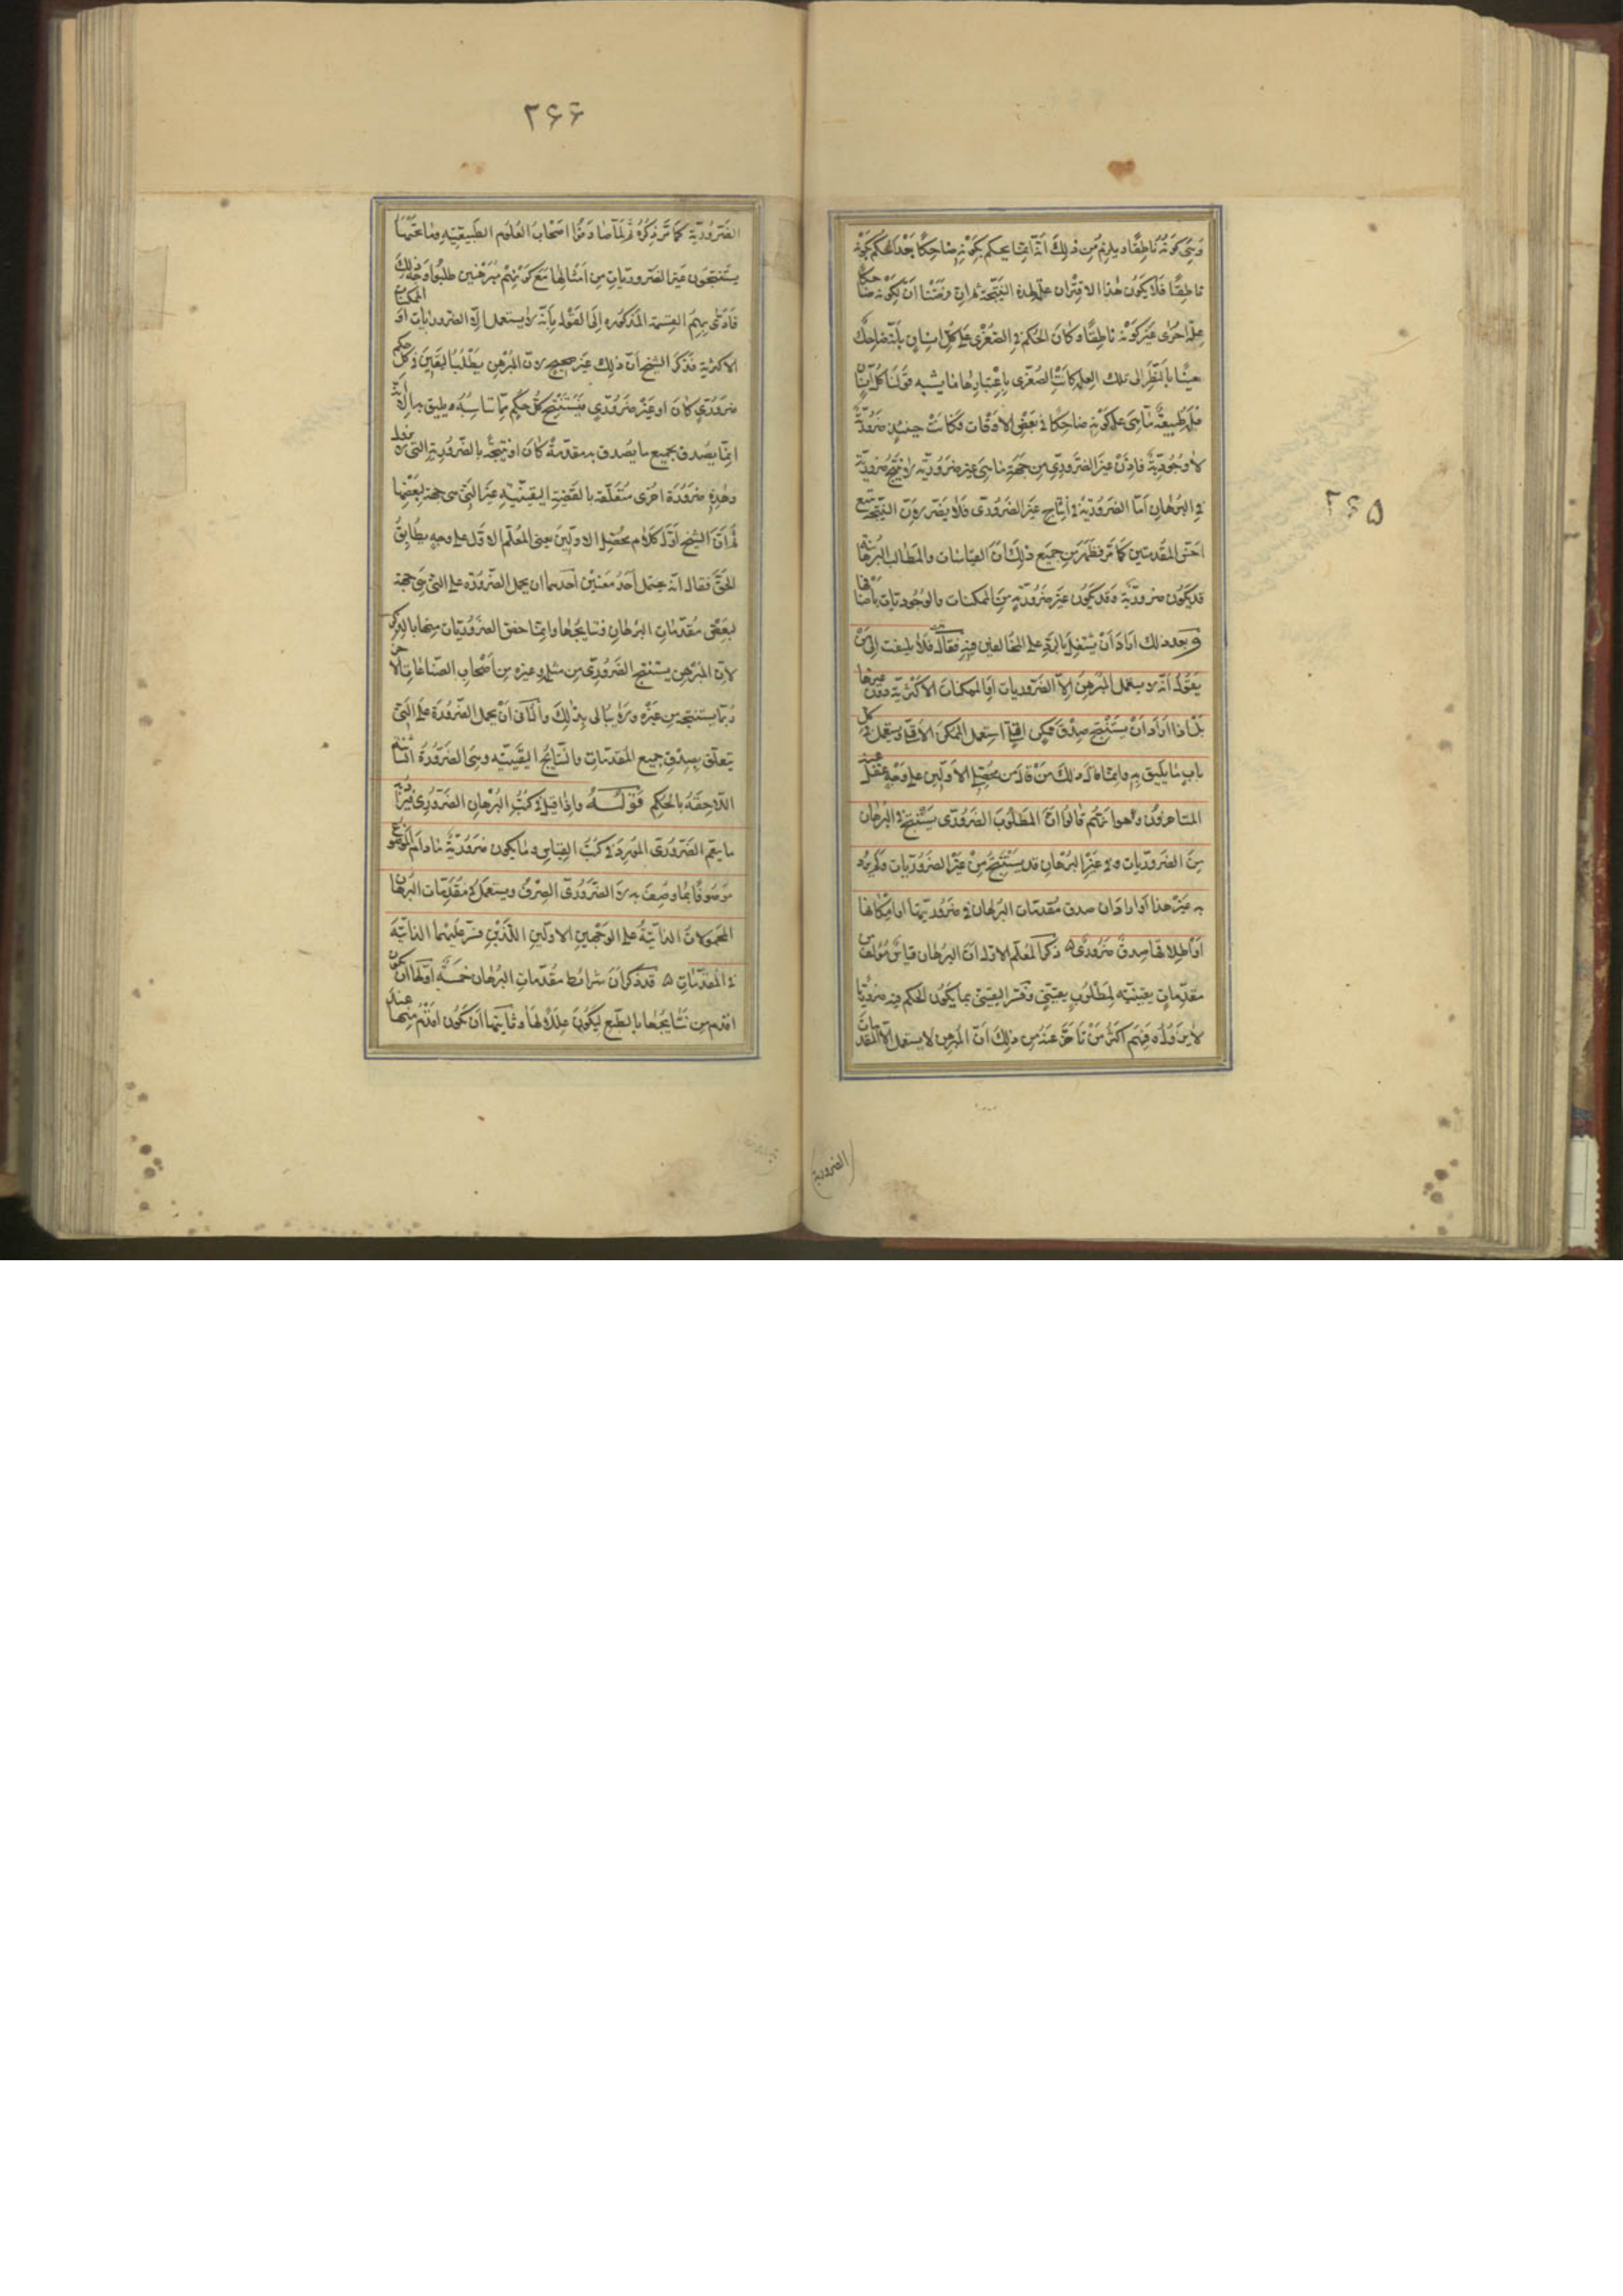 ۲۶۵
وهى كونه ناطقا ويلزم من ذلك أنه انما يحكم بكونه ضاحكا بعد الحكم بكونه
ناطقا فلا يكون هذا الاقتران علة لهذه النتيجة ثم ان فرضنا أن لكونه ضاحكا
علة اخرى غير كونه ناطقا وكان الحكم فى الصغرى على كل انسان بأنه ضاحك
حينا بالنظر الى تلك العلة كانت الصغرى باعتبارها ما يشبه قولنا كل انسان
فله طبيعة ما هى علة كونه ضاحكا فى بعض الاوقات فكانت حينئذ ضرورية
لا وجودية فاذن غير الضرورى من جهة ما هى غير ضرورية لا ينتج ضرورية
فى البرهان أما الضرورية فى انتاج غير الضرورى فلا يضر لان النتيجة تتبع
اخس المقدمتين كما مر فظهر من جميع ذلك ان القياسات والمطالب البرهانية
قد يكون ضرورية وقد يكون غير ضرورية من الممكنات والوجوديات بأصنافها
وبعد ذلك اراد أن يشتغل بالرد على المخالفين فيه فقال فلا يلتفت الى من
يقول أنه لا يستعمل المبرهن الا الضروريات او الممكنات الاكثرية دون غيرها
بل اذا اراد أن يستنتج صدق ممكن اقلى استعمل الممكن الاقلى ويستعمل فى كل
باب ما يليق به وانما قال ذلك من قال من محصلى الاولين على وجه غفل عنه
المتاخرون وهو انهم قالوا ان المطلوب الضرورى يستنتج فى البرهان
من الضروريات وفى غير البرهان قد يستنتج من غير الضروريات ولم يرد
به غير هذا أو اراد ان صدق مقدمات البرهان فى ضروريتها او امكانها
او اطلاقها صدق ضرورى ۵ ذكر المعلم الاول ان البرهان قياس مؤلف من
مقدمات يقينية لمطلوب يقينى وفسر اليقينى بما يكون الحكم فيه ضروريا
لا يزول ففهم اكثر من تاخر عنه من ذلك أن المبرهن لا يستعمل الا المقدمات
(الضرورية)
۲۶۶
الضرورية كما مر ذكره ثم لما صادفوا اصحاب العلوم الطبيعية وما تحتها
يستنتجون غير الضروريات من امثالها مع كونهم مبرهنين طلبوا وجه ذلك
فادتهم القسمة المذكورة الى القول بأنه لا يستعمل الا الضروريات او الممكنات
الاكثرية فذكر الشيخ أن ذلك غير صحيح لان المبرهن يطلب اليقين فى كل حكم
ضرورى كان او غير ضرورى فيستنتج كل حكم مما يناسبه ويليق به الا أنه
انما يصدق بجميع ما يصدق به مقدمة كان او نتيجة بالضرورية التى لا تزول
وهذه ضرورة اخرى متعلقة بالقضية اليقينية غير التى هى جهة لبعضها
ثم ان الشيخ اول كلام محصلى الاولين يعنى المعلم الاول على وجه يطابق
الحق فقال انه يحتمل أحد معنيين احدهما ان يحمل الضرورة على التى هى جهة
لبعض مقدمات البرهان ونتايجها وانما خص الضروريات منها بالذكر
لان المبرهن يستنتج الضرورى من مثله وغيره من أصحاب الصناعات الاخر
ربما يستنتجه من غيره ولا يبالى بذلك والثانى أن يحمل الضرورة على التى
يتعلق بصدق جميع المقدمات والنتايج اليقينية وهى الضرورة الثانية
اللاحقة بالحكم قوله واذا قيل فى كتب البرهان الضرورى فيراد به
ما يعم الضرورى المورد فى كتب القياس وما يكون ضرورية ما دام الموضوع
موصوفا بما وصف به لا الضرورى الصرف ويستعمل فى مقدمات البرهان
المحمولات الذاتية على الوجهين الاولين اللذين فسر عليهما الذاتية
فى المقدمات ۵ قد ذكر ان شرائط مقدمات البرهان خمسة اولها ان يكون
اقدم من نتايجها بالطبع ليكون علة لها وثانيها أن يكون اقدم منها عند